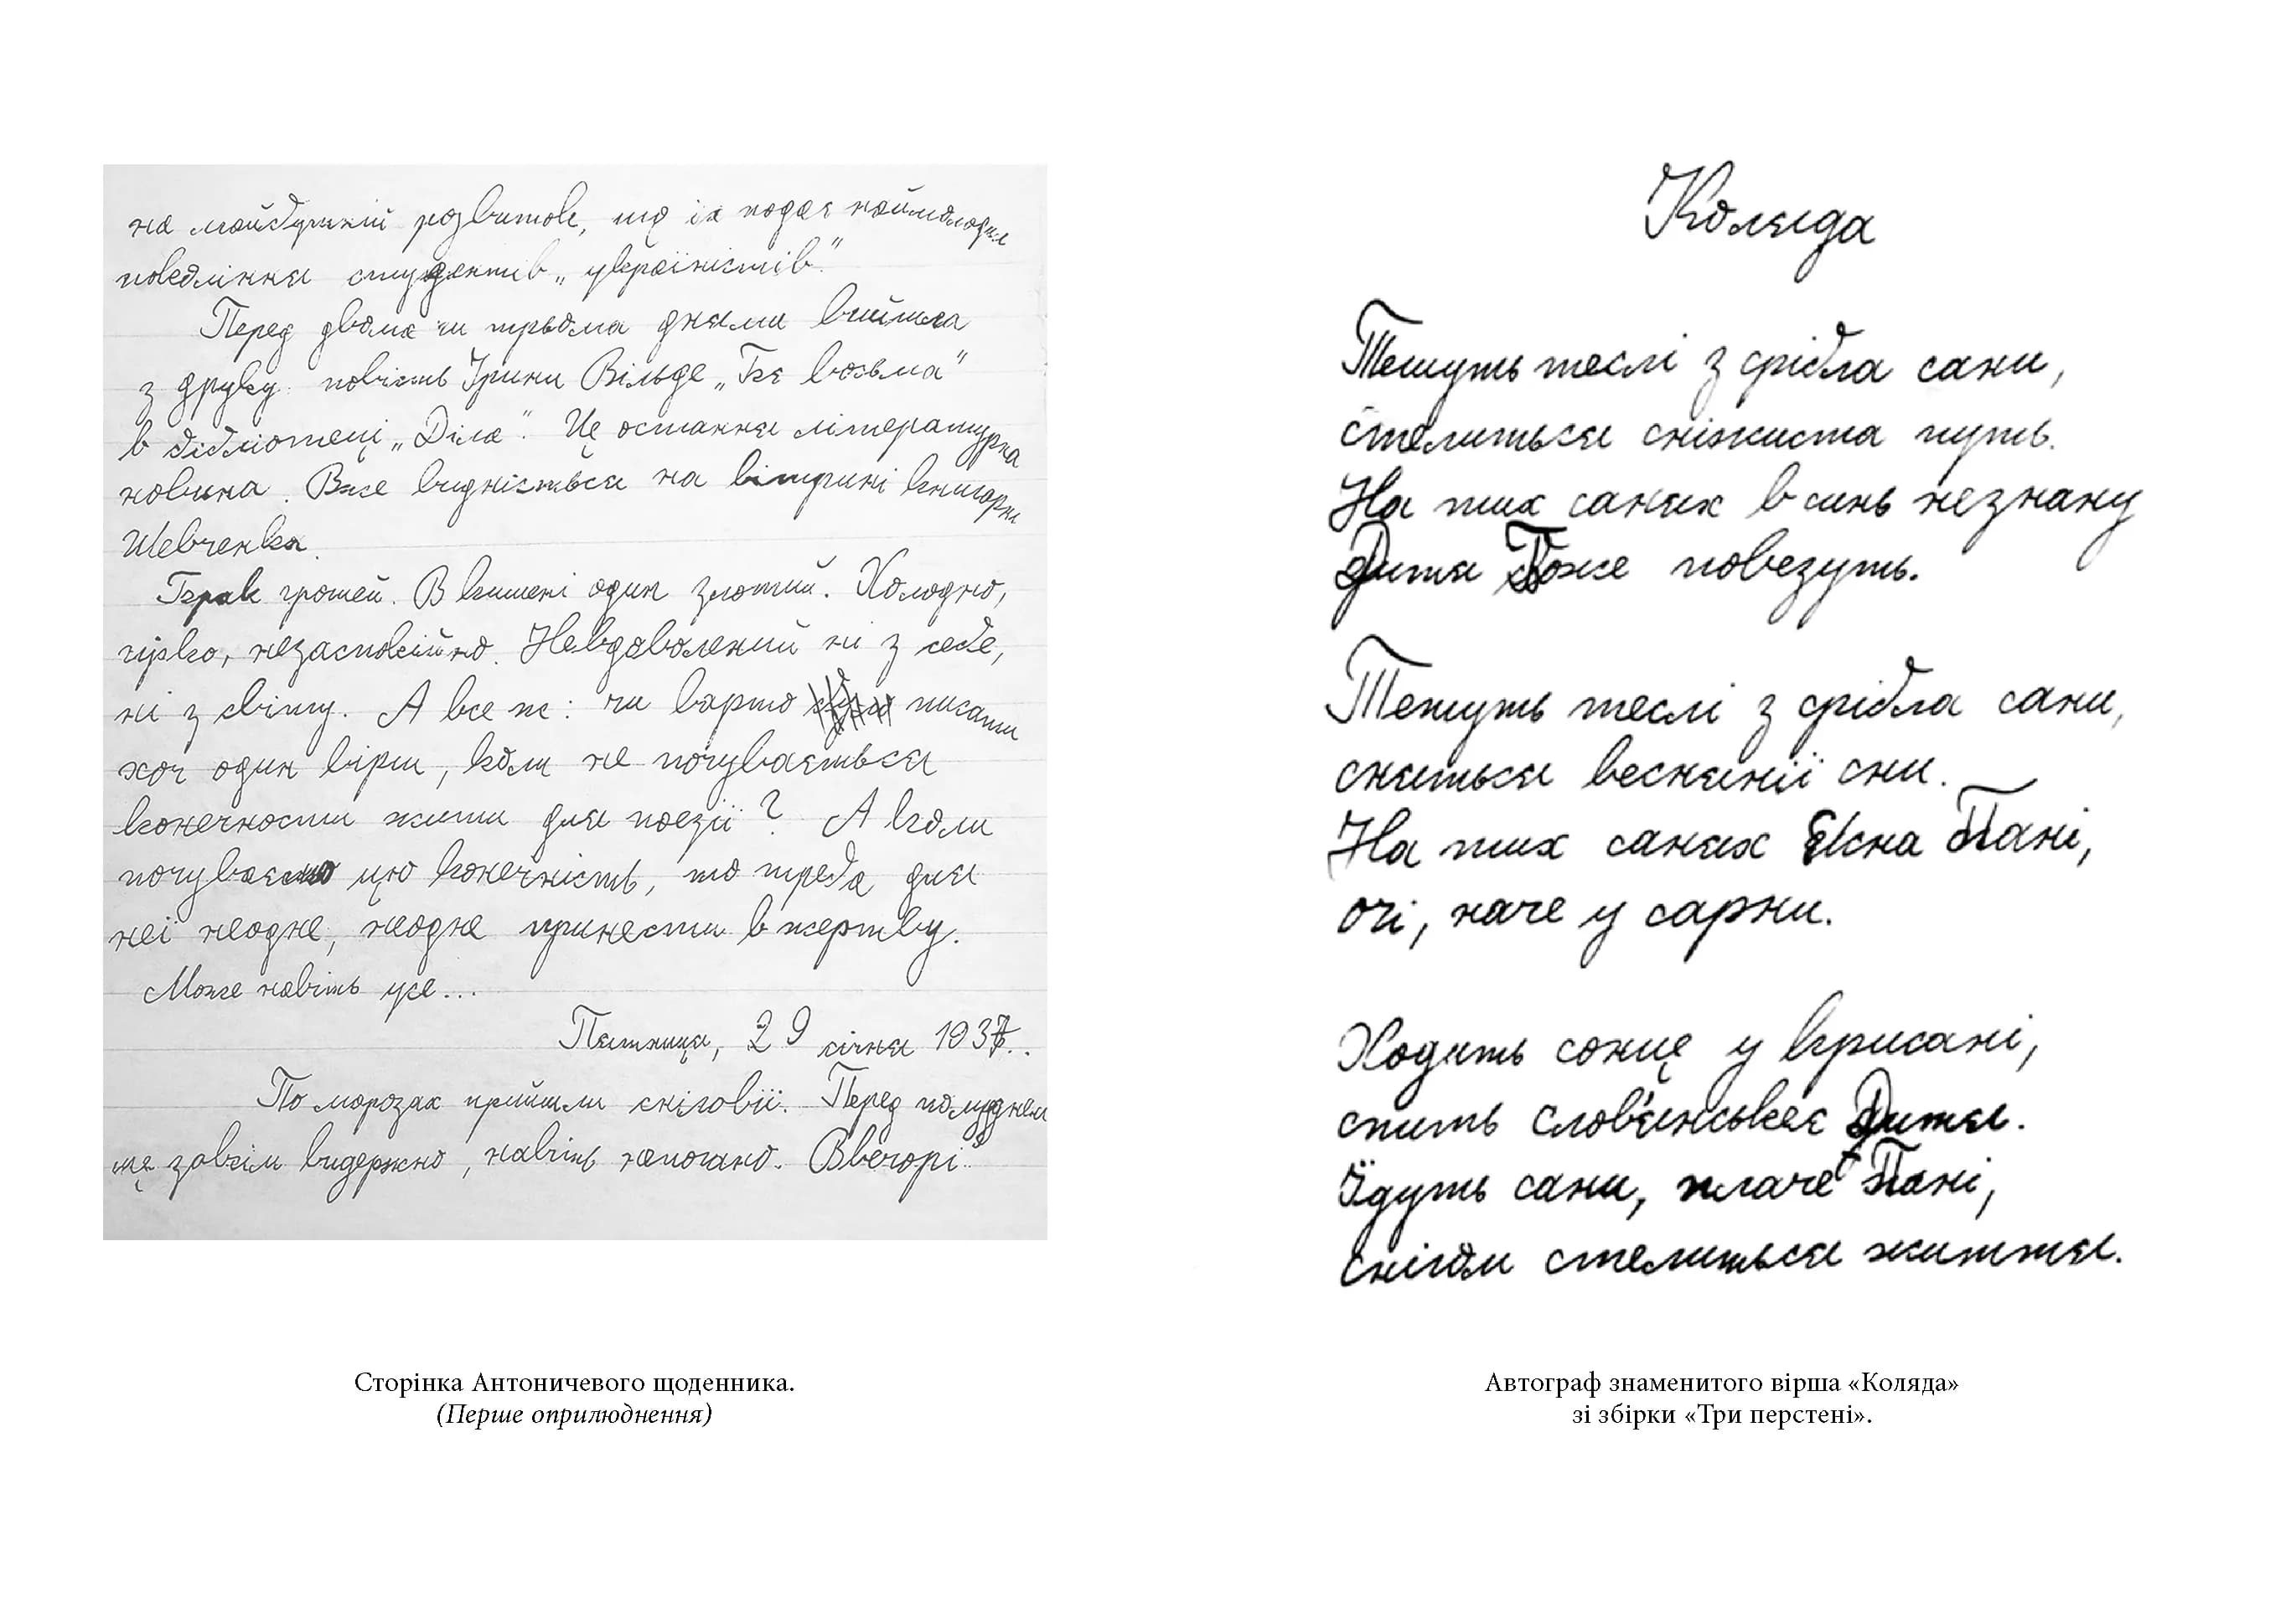 на майбутній розвиток, що їх подає наймолодше
покоління студентів „україністів”
Перед двома чи трьома днями вийшла
з друку повість Ірини Вільде „Б'є восьма”
в бібліотеці „Діла”. Це остання літературна
новина. Вже видніється на вітрині книгарні
Шевченка.
Брак грошей. В кишені один злотий. Холодно,
гірко, незаспокійно. Невдоволений ні з себе,
ні з світу. А все ж: чи варто писати
хоч один вірш, коли не почувається
конечности жити для поезії? А коли
почуваємо цю конечність, то треба для
неї неодне, неодне принести в жертву.
Може навіть усе...
Пятниця, 29 січня 1937.
По морозах прийшли сніговії. Перед полуднем
ще зовсім видержно, навіть непогано. Ввечорі
Сторінка Антоничевого щоденника.
(Перше оприлюднення)
Коляда
Тешуть теслі з срібла сани,
стелиться сніжиста путь.
На тих санях в синь незнану
Дитя Боже повезуть.
Тешуть теслі з срібла сани,
сняться веснянії сни.
На тих санях Ясна Пані,
очі, наче у сарни.
Ходить сонце у крисані,
спить слов'янськеє Дитя.
Їдуть сани, плаче Пані,
снігом стелиться життя.
Автограф знаменитого вірша «Коляда»
зі збірки «Три перстені».